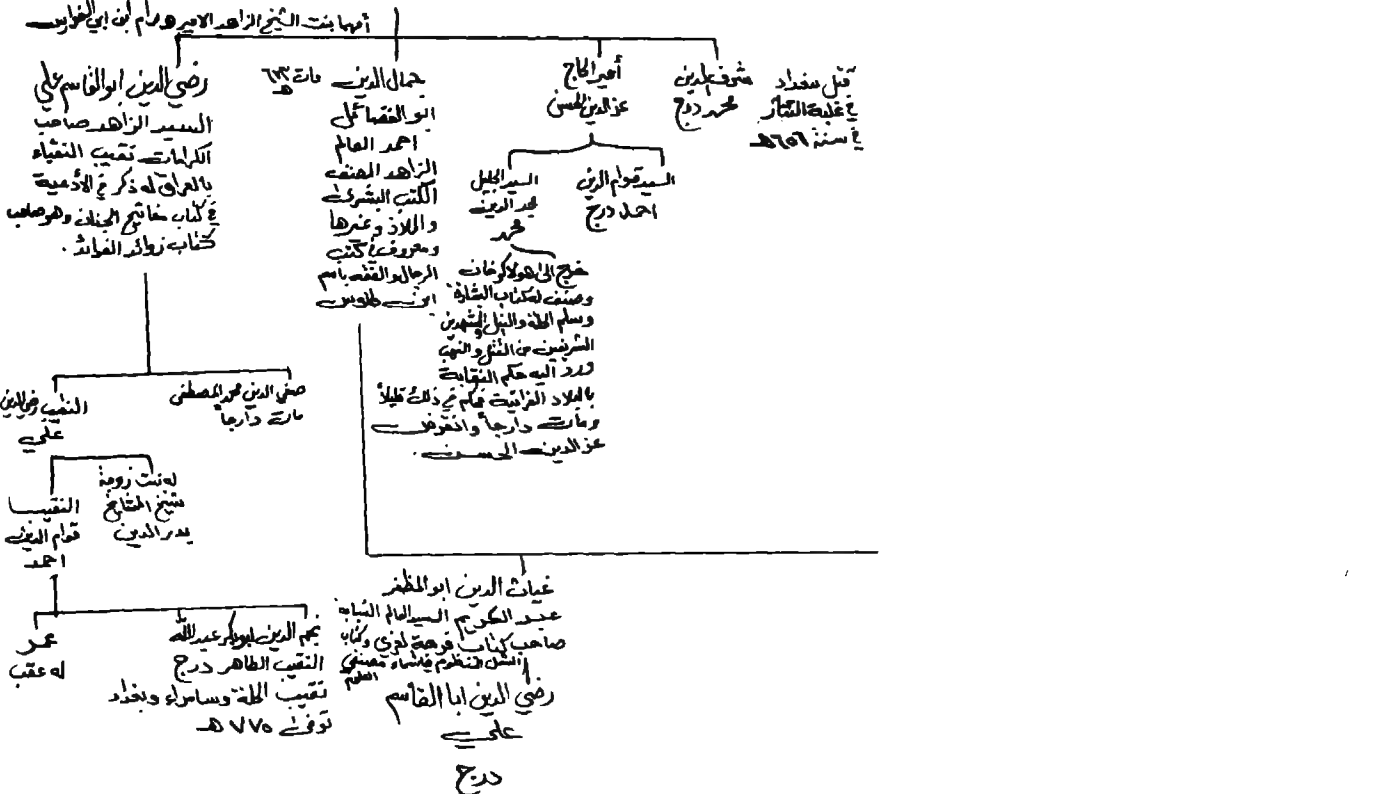 أمهما بنت الشيخ الزاهد الامير ورام ابن ابي الفوارس
قتل ببغداد
في غلبة التتار
في سنة ٦٥٦هـ
شرف الدين
محمد درج
أمير الحاج
عز الدين الحسن
السيد قوام الدين
احمد درج
السيد الجليل
مجد الدين
محمد
خرج الى هولاكوخان
وصنف له كتاب البشارة
وسلم الحلة والنيل والمشهدين
الشريفين من القتل والنهب
ورد اليه حكم النقابة
بالبلاد الفراتية فحكم في ذلك قليلاً
ومات دارجاً وانقرض
عز الدين الحسن.
جمال الدين
مات ٦٧٣
هـ
ابو الفضائل
احمد العالم
الزاهد المصنف
الكتب البشرى
والملاذ وغيرها
ومعروف في كتب
الرجال والفقه باسم
ابن طاووس
رضي الدين ابو القاسم علي
السيد الزاهد صاحب
الكرامات نقيب النقباء
بالعراق له ذكر في الأدعية
في كتاب مفاتيح الجنان وهو صاحب
كتاب زوائد الفوائد.
صفي الدين محمد المصطفى
مات دارجاً
النقيب رضي الدين
علي
له بنت زوجة
شيخ المشايخ
بدر الدين
النقيب
قوام الدين
احمد
نجم الدين ابو بكر عبد الله
النقيب الطاهر درج
نقيب الحلة وسامراء وبغداد
توفى ٧٧٥ هـ
عمر
له عقب
غياث الدين ابو المظفر
عبد الكريم السيد العالم النسابة
صاحب كتاب فرحة لغري وكتاب
الشمل المنظوم في اسماء مصنفي
العلوم
رضي الدين ابا القاسم
علي
درج